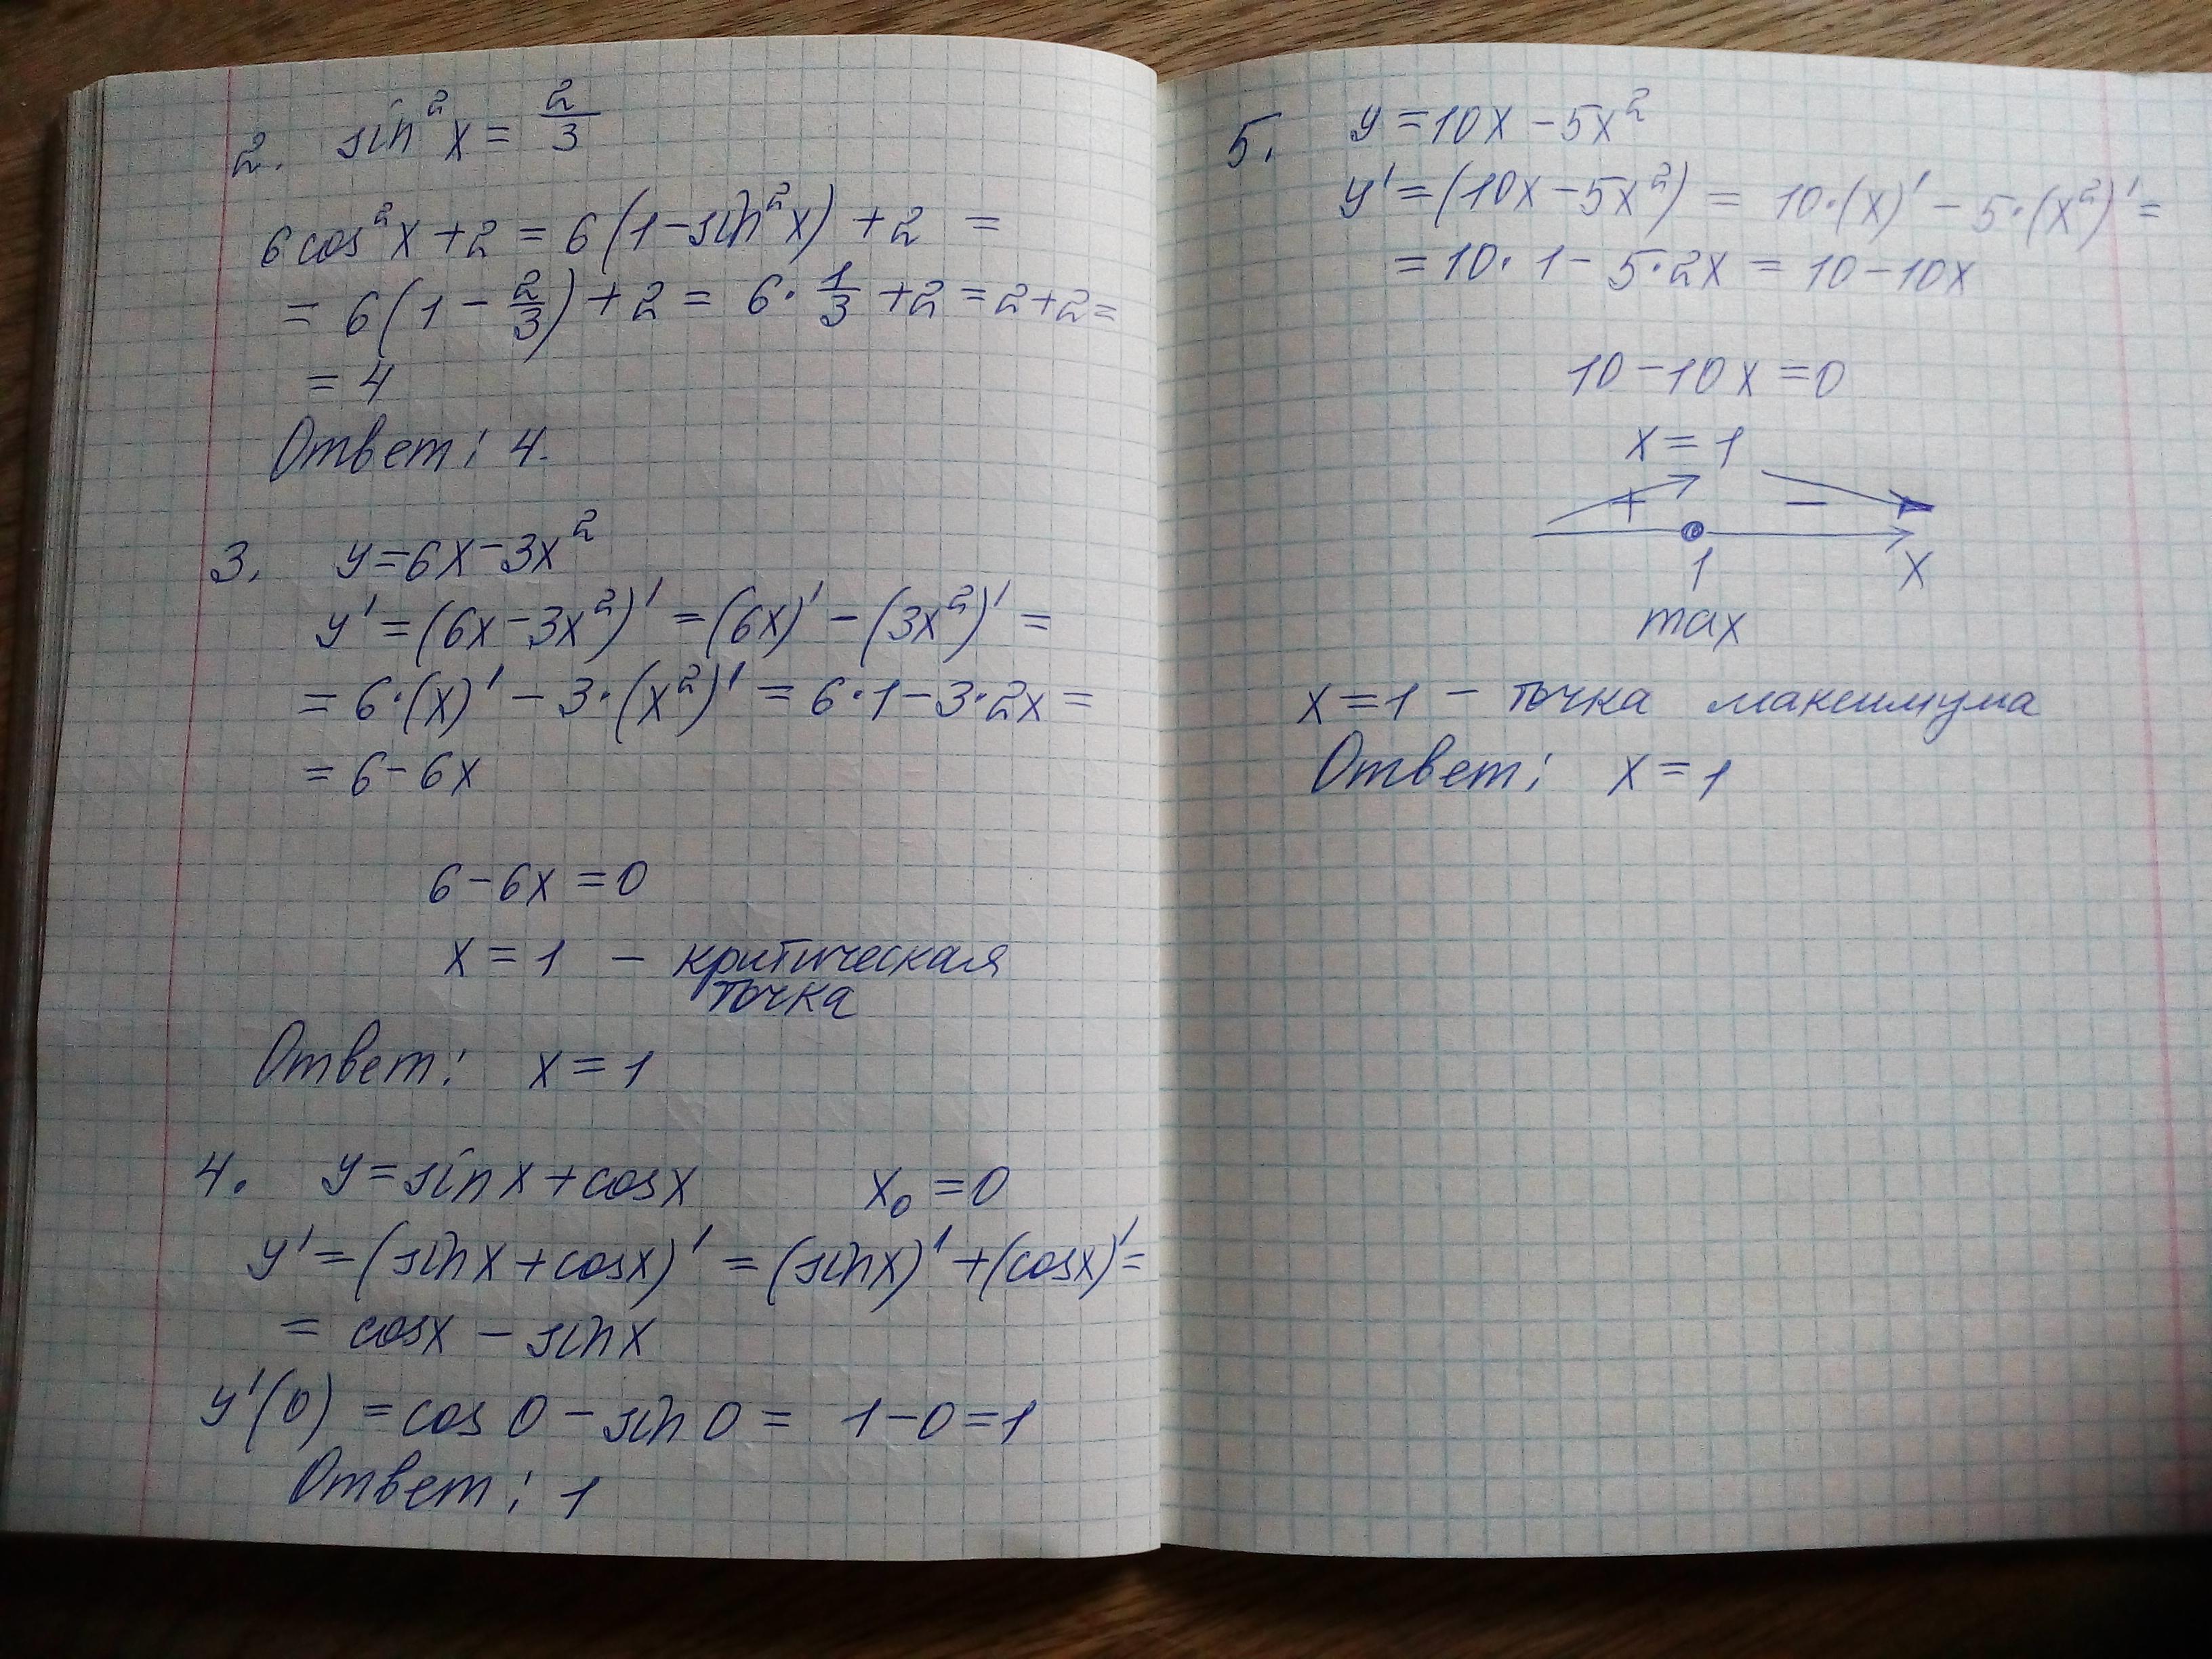 2. sin²x = 2/3
6cos²x + 2 = 6(1 - sin²x) + 2 =
= 6(1 - 2/3) + 2 = 6 · 1/3 + 2 = 2 + 2 =
= 4
Ответ: 4.
3. y = 6x - 3x²
y' = (6x - 3x²)' = (6x)' - (3x²)' =
= 6·(x)' - 3·(x²)' = 6·1 - 3·2x =
= 6 - 6x
6 - 6x = 0
x = 1 - критическая
точка
Ответ: x = 1
4. y = sinx + cosx x₀ = 0
y' = (sinx + cosx)' = (sinx)' + (cosx)' =
= cosx - sinx
y'(0) = cos 0 - sin 0 = 1 - 0 = 1
Ответ: 1
5. y = 10x - 5x²
y' = (10x - 5x²) = 10·(x)' - 5·(x²)' =
= 10·1 - 5·2x = 10 - 10x
10 - 10x = 0
x = 1
+ -
1 x
max
x = 1 - точка максимума
Ответ: x = 1